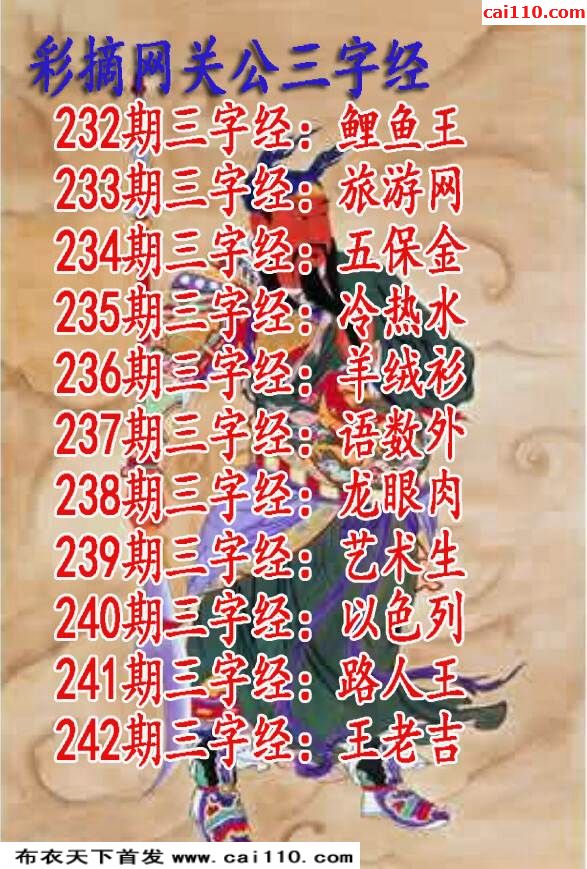 cai110.com
彩摘网关公三字经
232期三字经：鲤鱼王
233期三字经：旅游网
234期三字经：五保金
235期三字经：冷热水
236期三字经：羊绒衫
237期三字经：语数外
238期三字经：龙眼肉
239期三字经：艺术生
240期三字经：以色列
241期三字经：路人王
242期三字经：王老吉
布衣天下首发 www.cai110.com